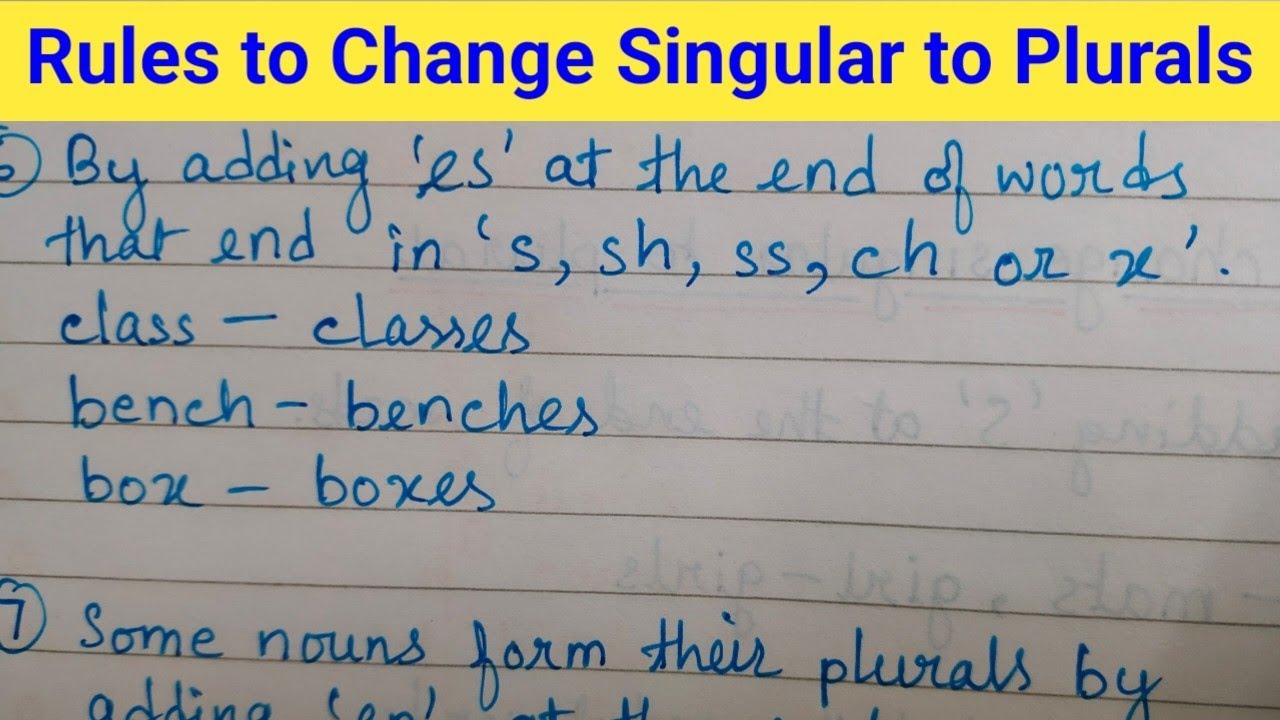 Rules to Change Singular to Plurals
6 By adding 'es' at the end of words
that end in 's, sh, ss, ch or x'.
class – classes
bench – benches
box – boxes
7 Some nouns form their plurals by
adding 'en' at the